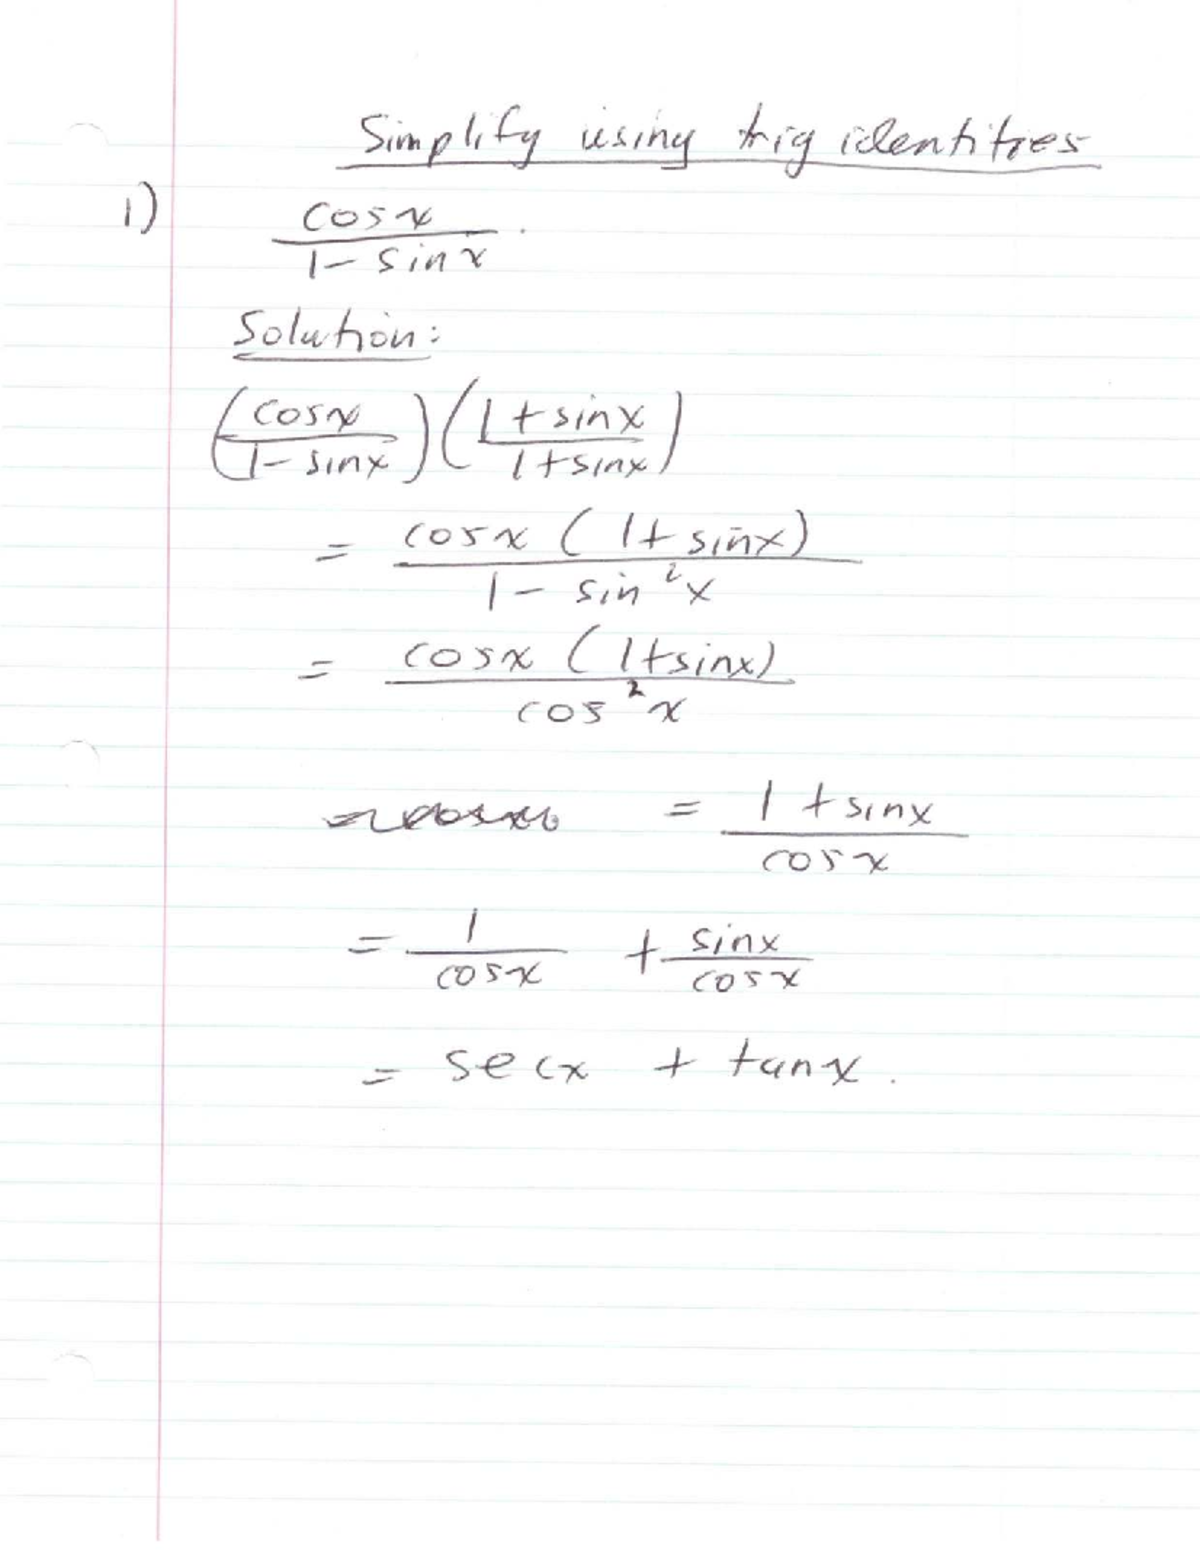 Simplify using trig identities
1) cosx / 1 - sinx .
Solution:
(cosx / 1 - sinx) (1 + sinx / 1 + sinx)
= cosx (1 + sinx) / 1 - sin²x
= cosx (1 + sinx) / cos²x
= 1 + sinx / cosx
= 1 / cosx + sinx / cosx
= secx + tanx .